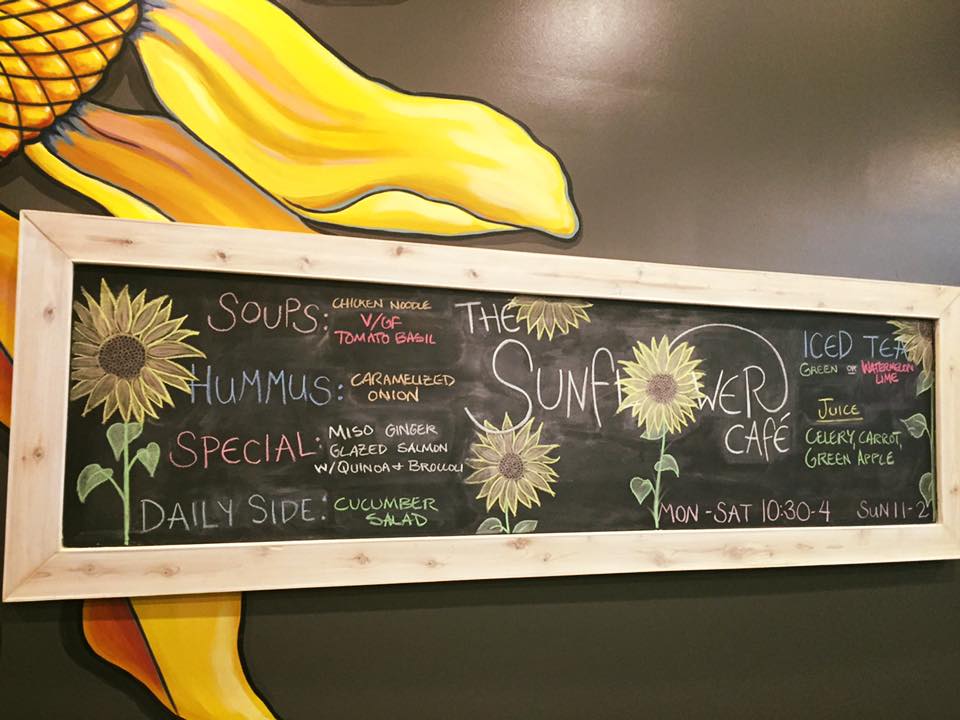 SOUPS: CHICKEN NOODLE
V/GF
TOMATO BASIL
HUMMUS: CARAMELIZED
ONION
SPECIAL: MISO GINGER
GLAZED SALMON
W/QUINOA + BROCCOLI
DAILY SIDE: CUCUMBER
SALAD
THE
SUNFLOWER
CAFÉ
MON-SAT 10:30-4 SUN 11-2
ICED TEA
GREEN OR WATERMELON
LIME
JUICE
CELERY, CARROT,
GREEN APPLE